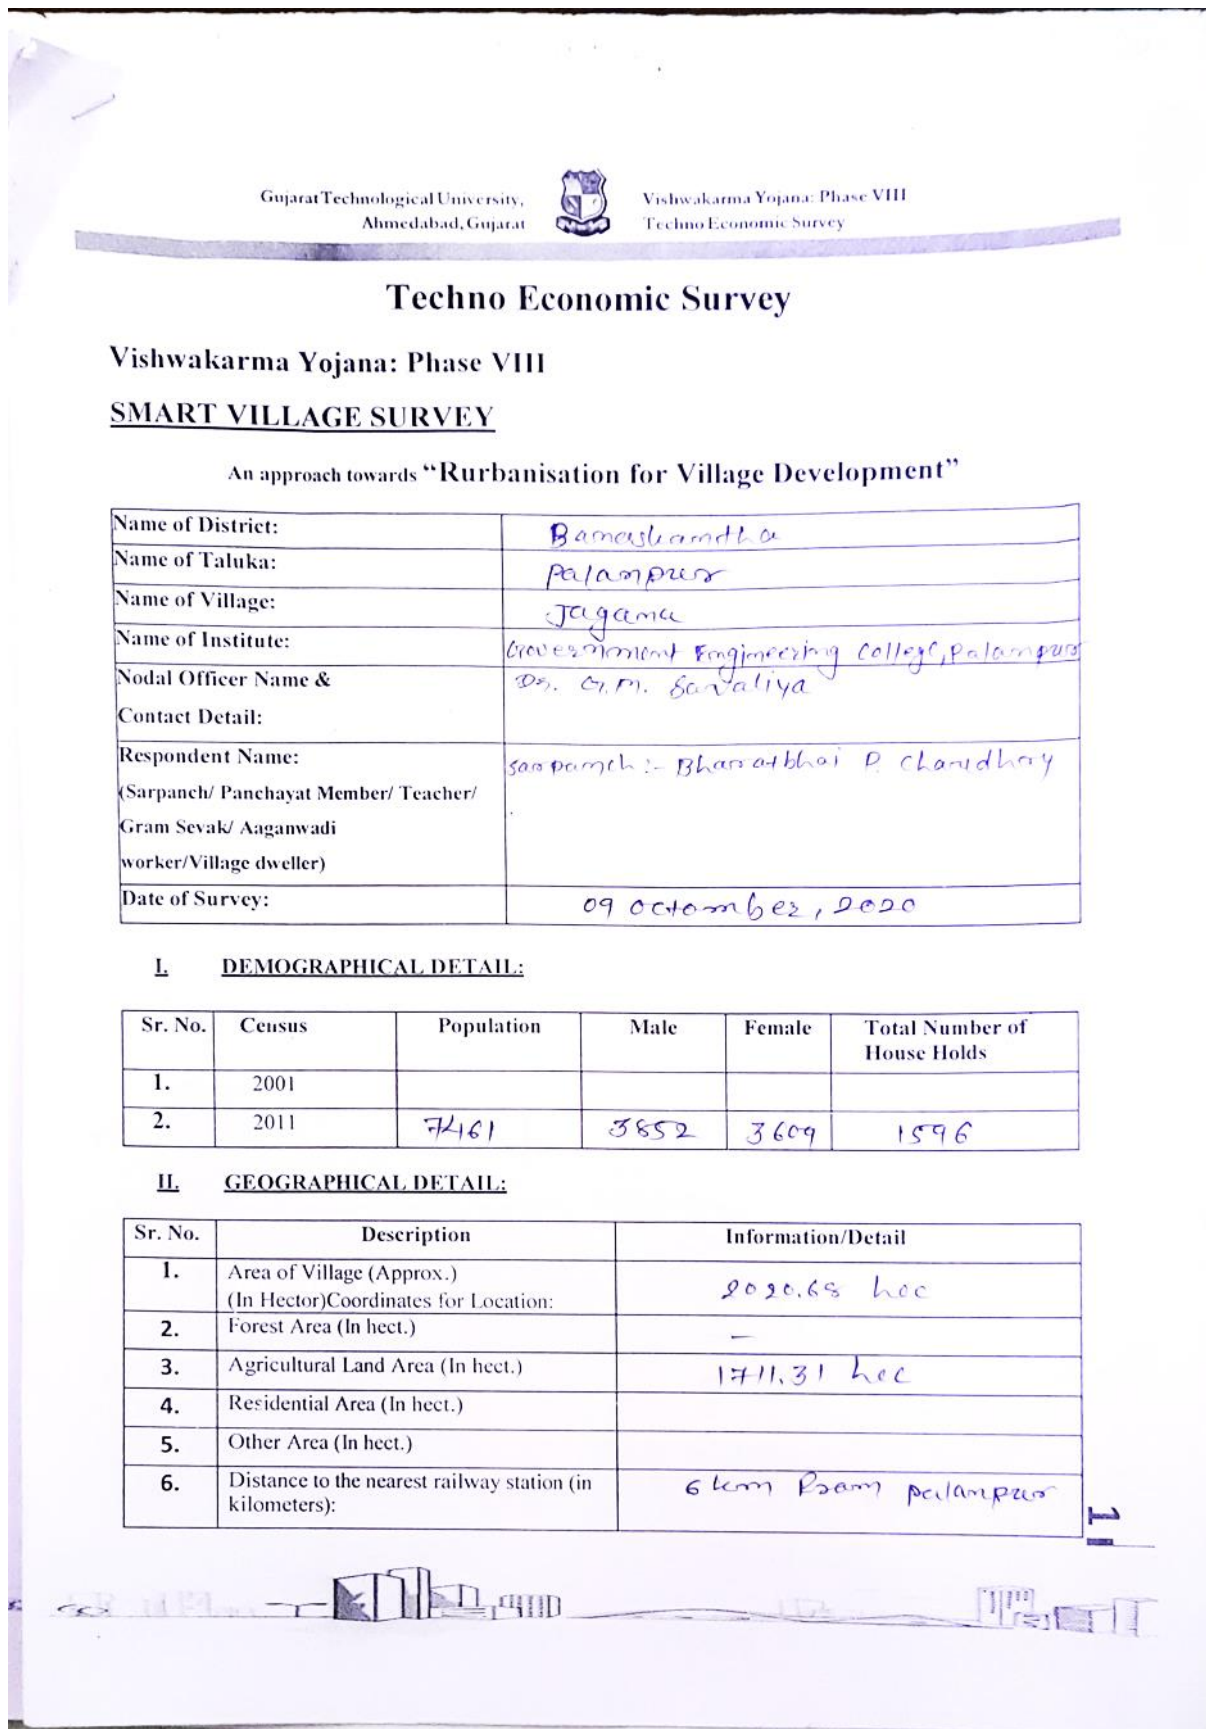 Gujarat Technological University,
Ahmedabad, Gujarat
Vishwakarma Yojana: Phase VIII
Techno Economic Survey
Techno Economic Survey
Vishwakarma Yojana: Phase VIII
SMART VILLAGE SURVEY
An approach towards “Rurbanisation for Village Development”
Name of District: Banaskantha
Name of Taluka: Palanpur
Name of Village: Jagana
Name of Institute: Government Engineering College, Palanpur
Nodal Officer Name & Dr. G.M. Savaliya
Contact Detail:
Respondent Name: Sarpanch :- Bharatbhai P. Chaudhary
(Sarpanch/ Panchayat Member/ Teacher/
Gram Sevak/ Aaganwadi
worker/Village dweller)
Date of Survey: 09 octomber, 2020
I. DEMOGRAPHICAL DETAIL:
Sr. No. Census Population Male Female Total Number of
House Holds
1. 2001
2. 2011 7461 3852 3609 1596
II. GEOGRAPHICAL DETAIL:
Sr. No. Description Information/Detail
1. Area of Village (Approx.)
(In Hector)Coordinates for Location: 2020.68 hec
2. Forest Area (In hect.) –
3. Agricultural Land Area (In hect.) 1711.31 hec
4. Residential Area (In hect.)
5. Other Area (In hect.)
6. Distance to the nearest railway station (in 6 km from palanpur
kilometers):
1